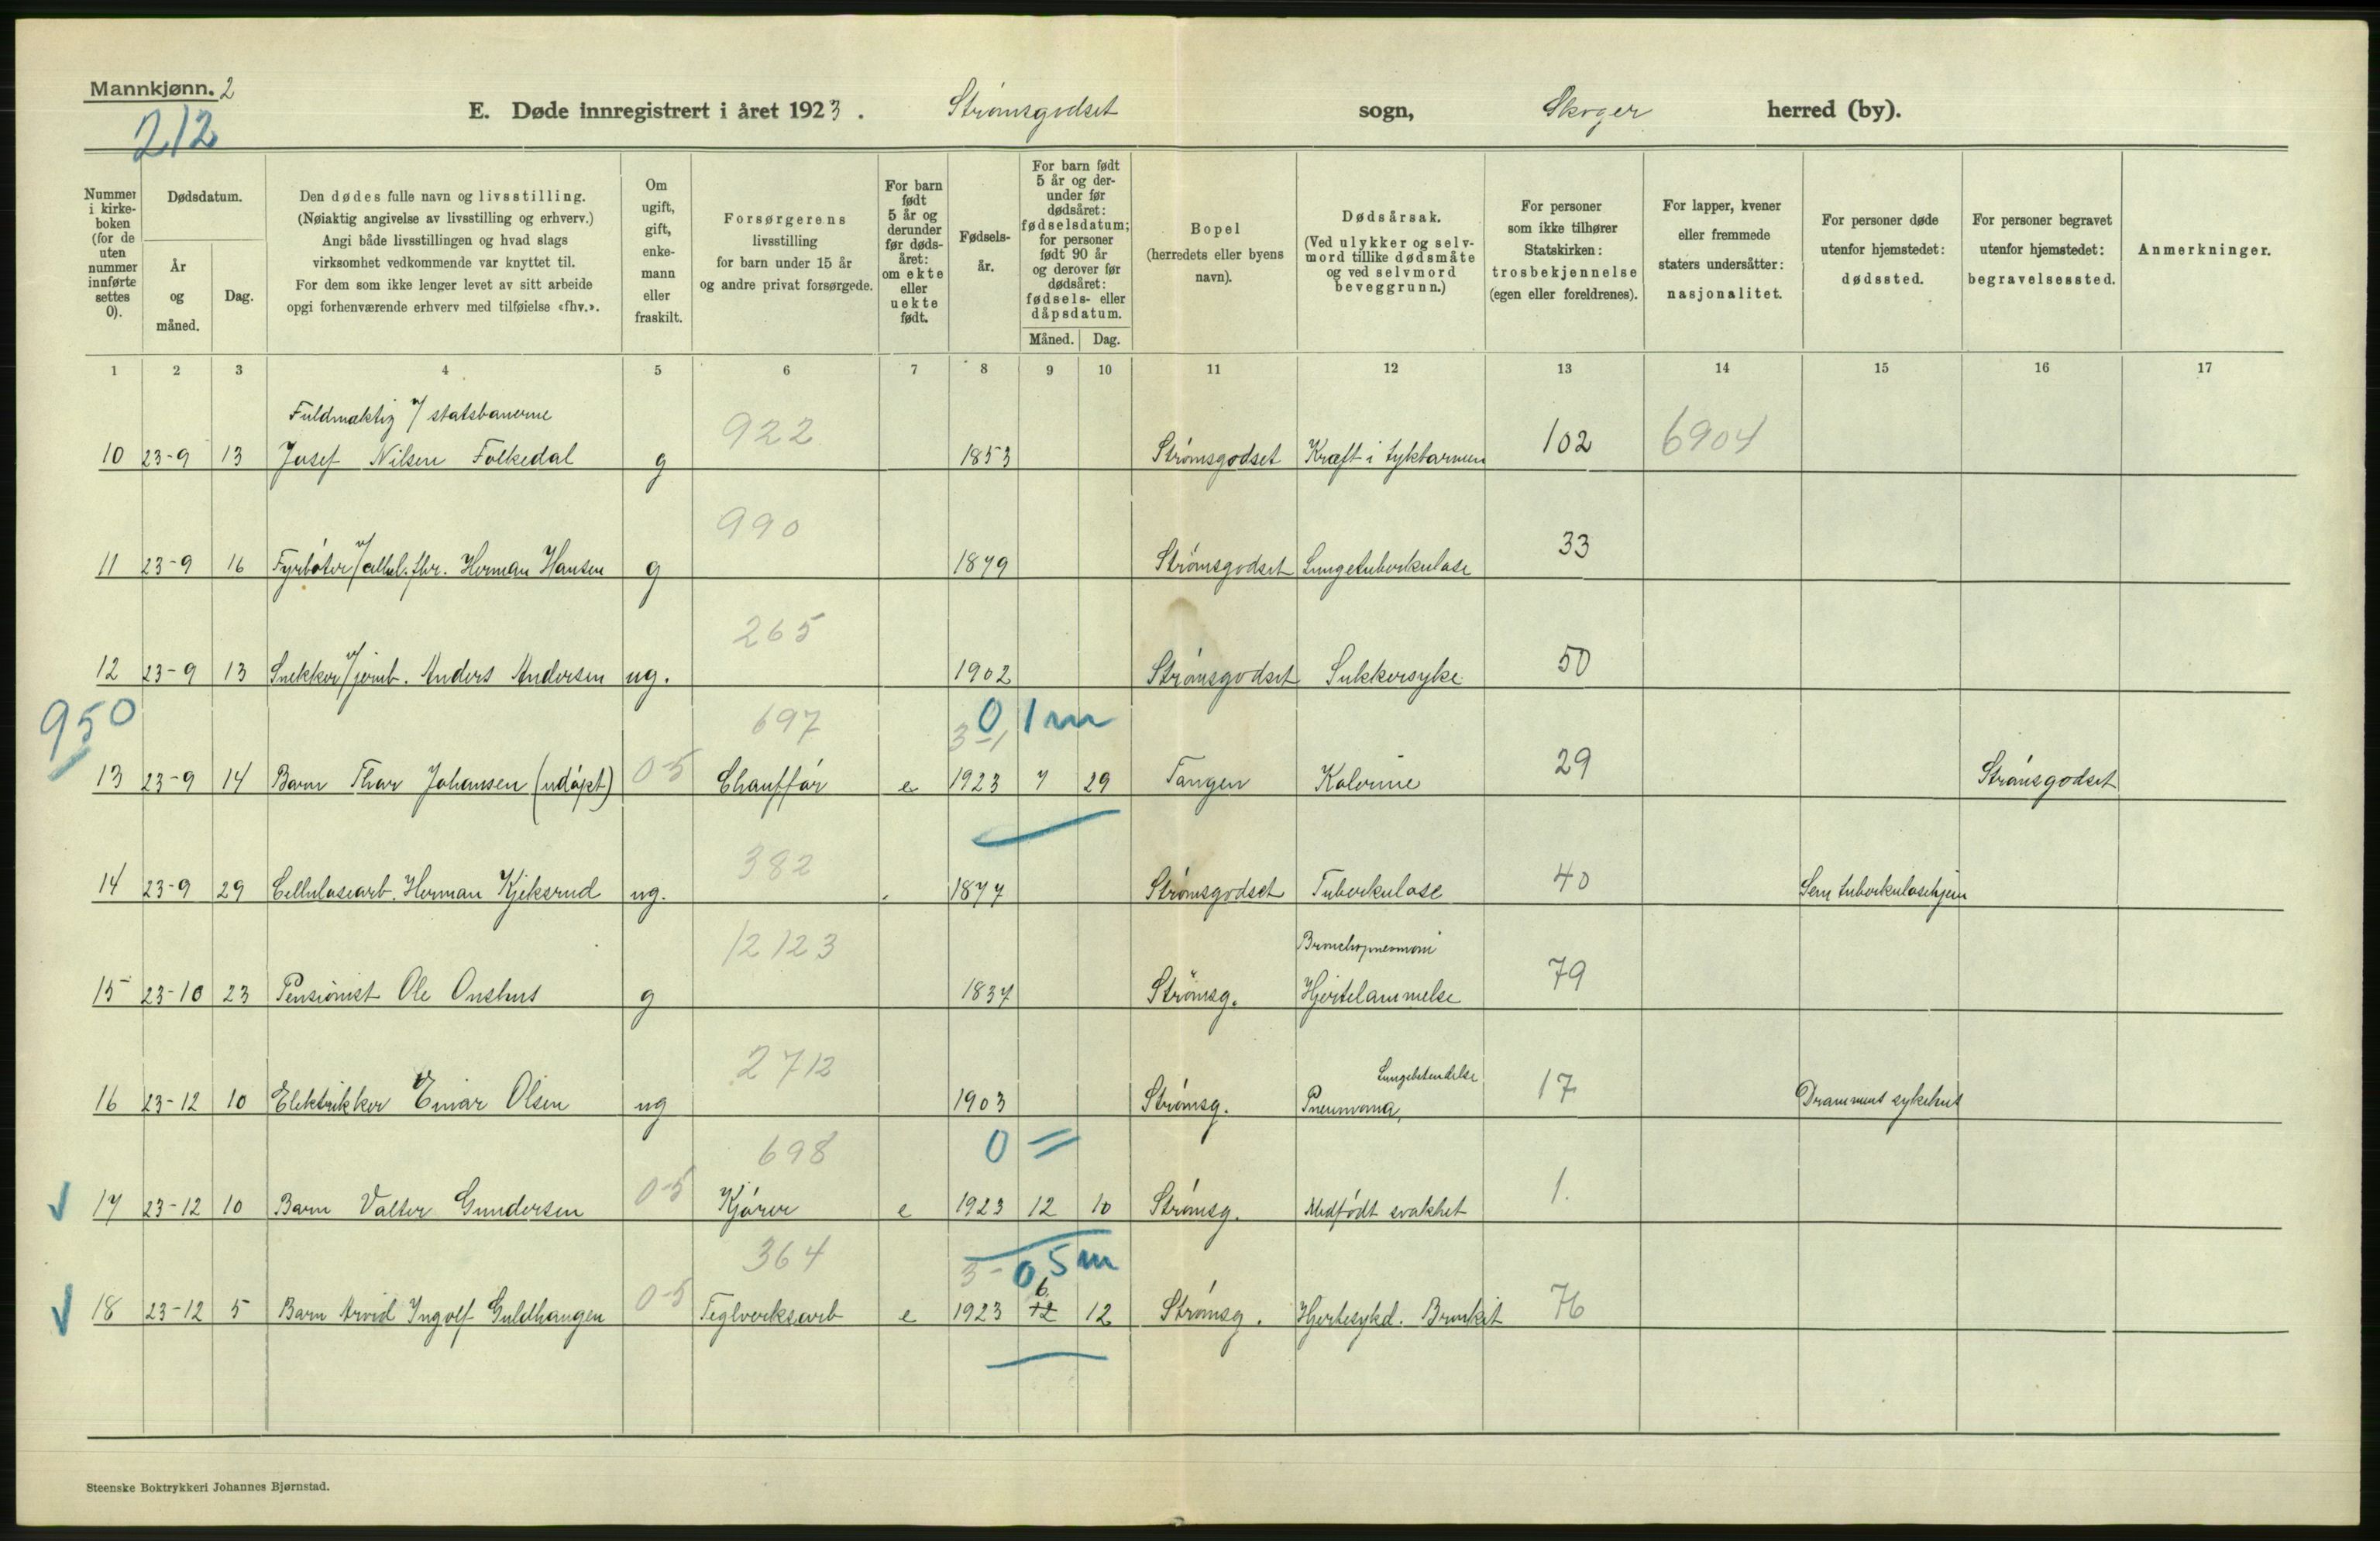 Mannkjønn. 2
212
E. Døde innregistrert i året 1923. Strømsgodset sogn, Skoger herred (by).
Nummer i kirkeboken (for de uten nummer innførte settes 0).
Dødsdatum.
År og måned.
Dag.
Den dødes fulle navn og livsstilling.
(Nøiaktig angivelse av livsstilling og erhverv.)
Angi både livsstillingen og hvad slags
virksomhet vedkommende var knyttet til.
For dem som ikke lenger levet av sitt arbeide
opgi forhenværende erhverv med tilføielse «fhv.».
Om ugift, gift, enkemann eller fraskilt.
Forsørgerens
livsstilling
for barn under 15 år
og andre privat forsørgede.
For barn født 5 år og derunder før dødsåret: om ekte eller uekte født.
Fødselsår.
For barn født 5 år og derunder før dødsåret: fødselsdatum; for personer født 90 år og derover før dødsåret: fødsels- eller dåpsdatum.
Måned. Dag.
Bopel
(herredets eller byens
navn).
Dødsårsak.
(Ved ulykker og selvmord tillike dødsmåte og ved selvmord beveggrunn.)
For personer
som ikke tilhører
Statskirken:
trosbekjennelse
(egen eller foreldrenes).
For lapper, kvener
eller fremmede
staters undersåtter:
nasjonalitet.
For personer døde
utenfor hjemstedet:
dødssted.
For personer begravet
utenfor hjemstedet:
begravelsessted.
Anmerkninger.
1 2 3 4 5 6 7 8 9 10 11 12 13 14 15 16 17
Fuldmæktig v/ statsbanerne 922
10 23-9 13 Josef Nilsen Folkedal g 1853 Strømsgodset Kræft i tyktarmen 102 6904
990
11 23-9 16 Fyrbøter v/ cellul.fbr. Herman Hansen g 1879 Strømsgodset Lungetuberkulose 33
265
12 23-9 13 Snekker v/ jernb. Anders Andersen ug. 1902 Strømsgodset Sukkersyke 50
950 697 3-1 0 1m
13 23-9 14 Barn Thor Johansen (udøpt) 0-5 Chauffør e 1923 7 29 Tangen Kolerine 29 Strømsgodset
382
14 23-9 29 Cellulosearb. Herman Kjeksrud ug. 1877 Strømsgodset Tuberkulose 40 Sem tuberkulosehjem
12123 Bronchopneumoni
15 23-10 23 Pensionist Ole Onshus g 1837 Strømsg. Hjertelammelse 79
2712 Lungebetendelse
16 23-12 10 Elektrikker Einar Olsen ug 1903 Strømsg. Pneumona, 17 Drammens sykehus
698 0 =
17 23-12 10 Barn Valter Gundersen 0-5 Kjører e 1923 12 10 Strømsg. Medfødt svakhet 1.
364 3- 0 5m
18 23-12 5 Barn Arvid Ingolf Guldhaugen 0-5 Teglverksarb e 1923 12 6 12 Strømsg. Hjertesykd. Bronkit 76
Steenske Boktrykkeri Johannes Bjørnstad.